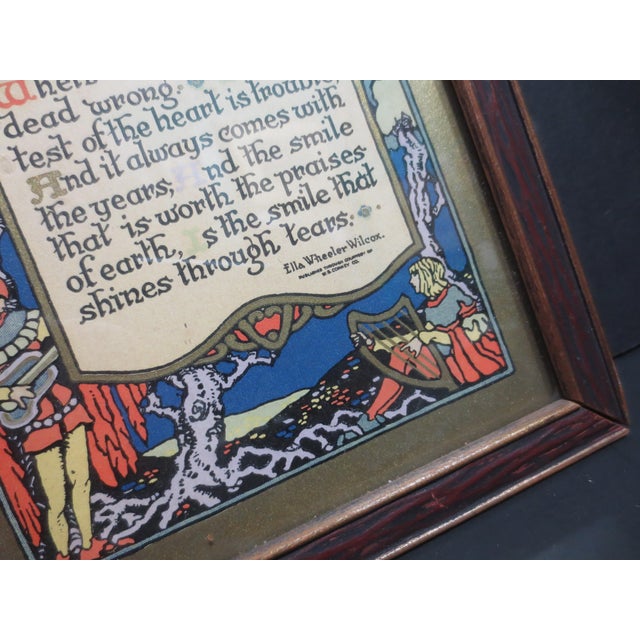 When
dead wrong.
test of the heart is trouble,
And it always comes with
the years; And the smile
that is worth the praises
of earth, Is the smile that
shines through tears.
Ella Wheeler Wilcox.
PUBLISHED THROUGH COURTESY OF
W.B. CONKEY CO.